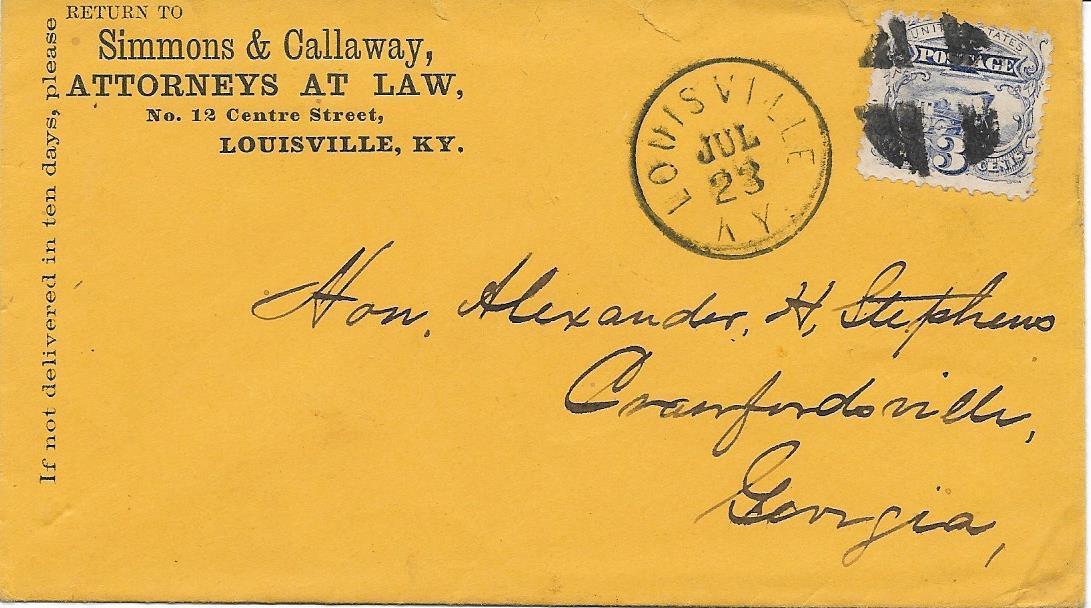 If not delivered in ten days, please
RETURN TO
Simmons & Callaway,
ATTORNEYS AT LAW,
No. 12 Centre Street,
LOUISVILLE, KY.
LOUISVILLE
JUL
23
KY.
UNITED STATES
POSTAGE
3
CENTS
Hon. Alexander, H, Stephens
Crawfordsville,
Georgia,